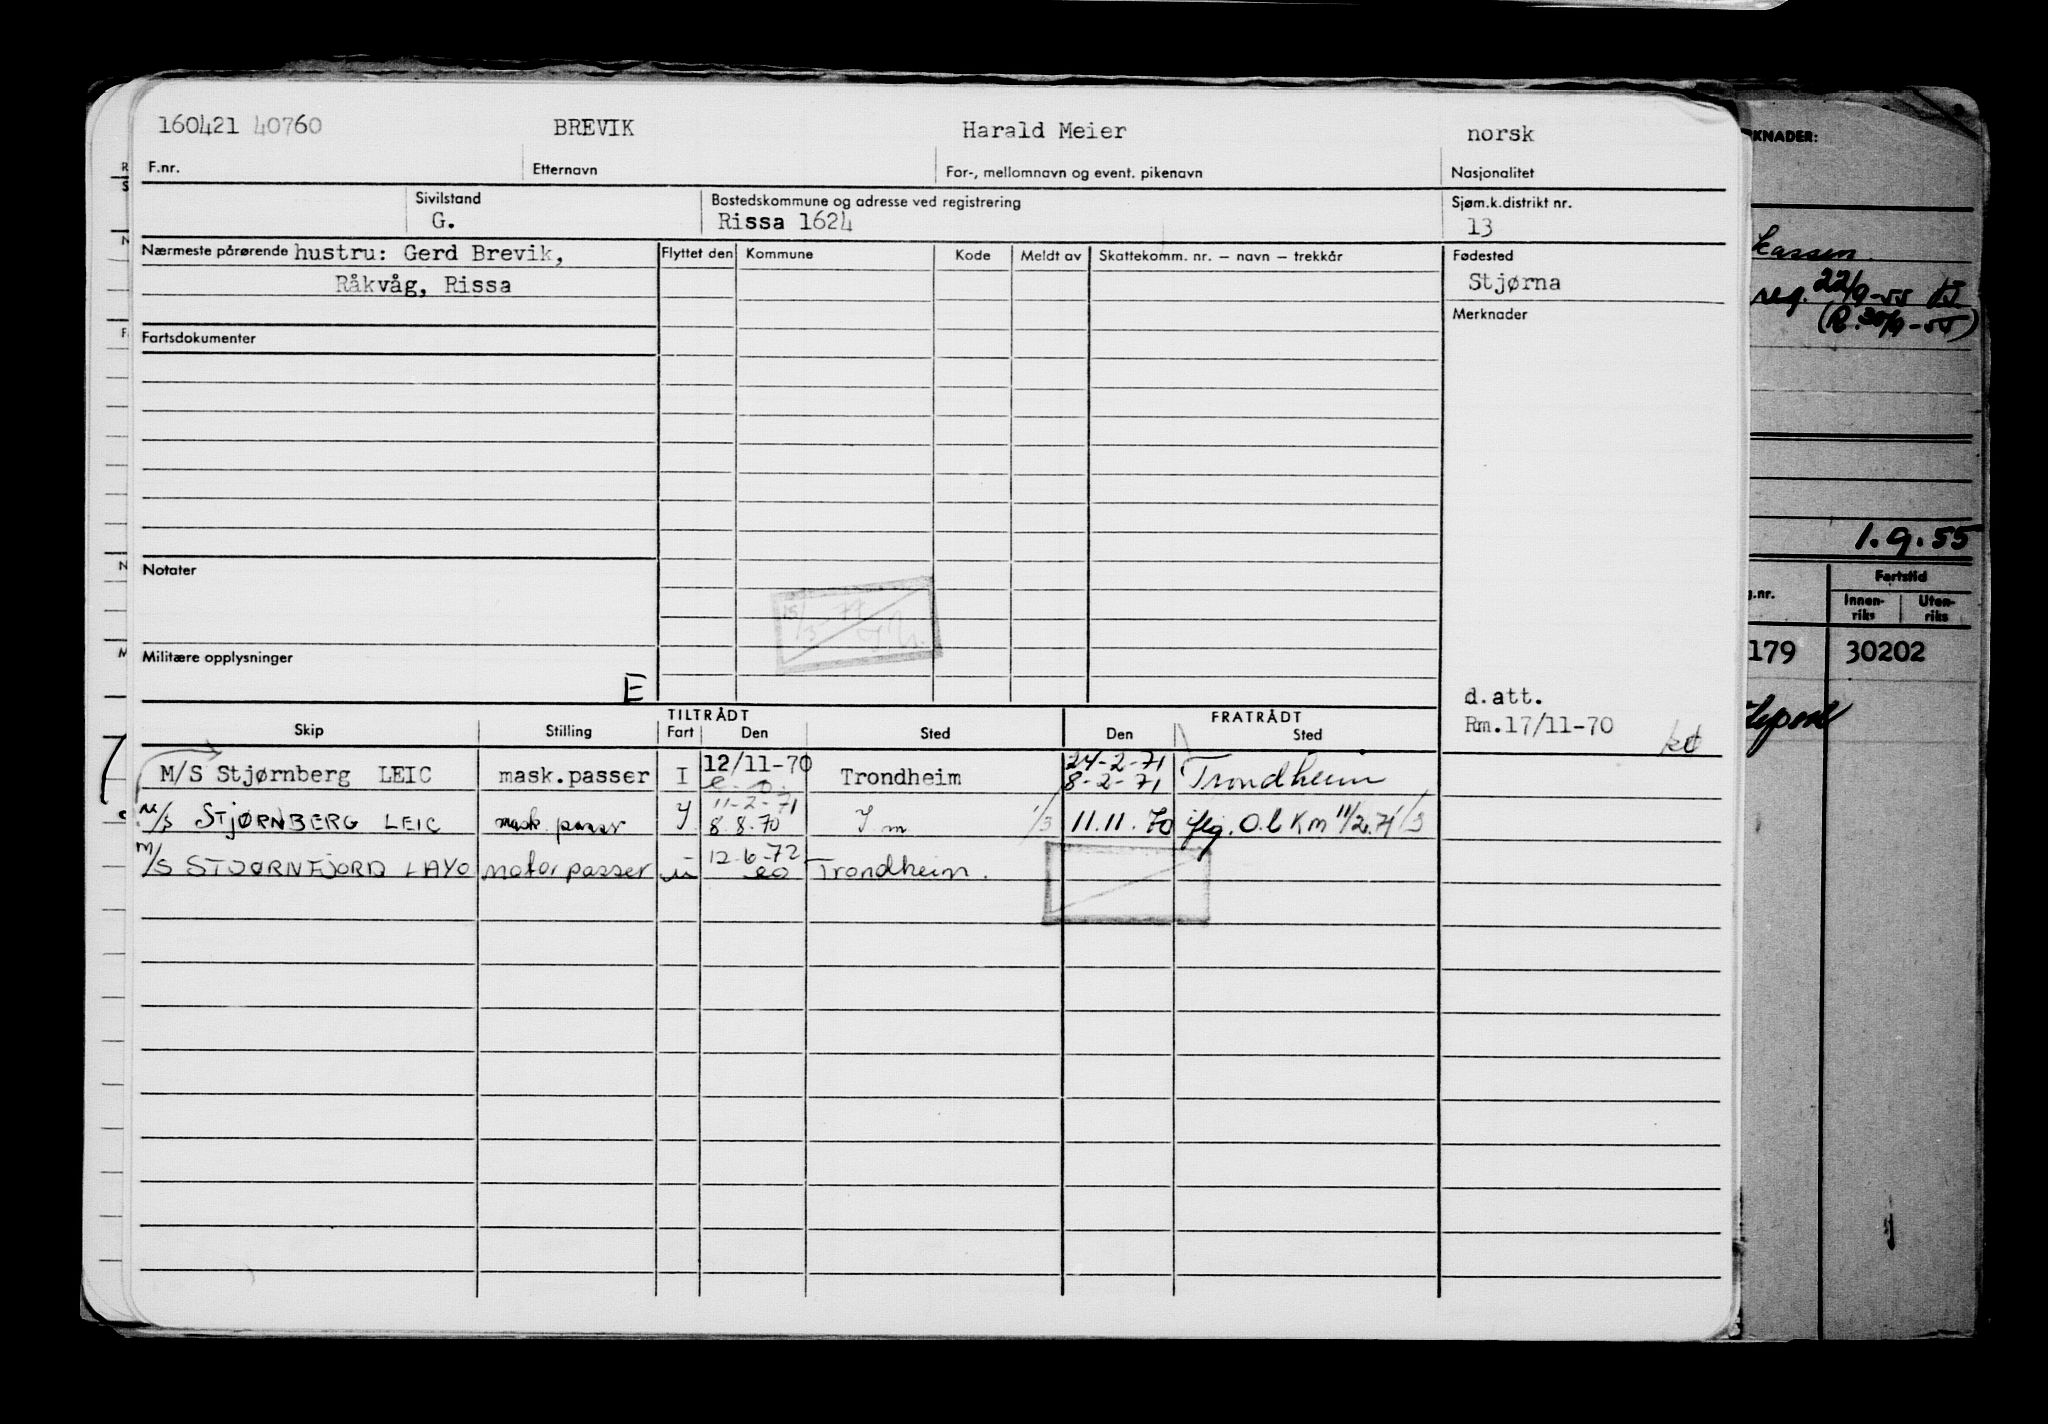 160421 40760 BREVIK Harald Meier norsk
F.nr. Etternavn For-, mellomnavn og event. pikenavn Nasjonalitet
Sivilstand Bostedskommune og adresse ved registrering Sjøm.k.distrikt nr.
G. Rissa 1624 13
Nærmeste pårørende hustru: Gerd Brevik, Flyttet den Kommune Kode Meldt av Skattekomm. nr. – navn – trekkår Fødested
Råkvåg, Rissa Stjørna
Merknader
Fartsdokumenter
Notater
15/3-77
Militære opplysninger
E
d.att.
Rm.17/11-70
TILTRÅDT FRATRÅDT
Skip Stilling Fart Den Sted Den Sted
M/S Stjørnberg LEIC mask.passer I 12/11-70 Trondheim 24-2-71 8-2-71 Trondheim
M/S STJØRNBERG LEIC mask. passer 11-2-71 8.8.70 1/3 11.11.70 iflg. O.b Km 11/2.71 1/3
M/S STJØRNFJORD LAYO motorpasser 12-6-72 eo Trondheim.
KNADER:
kassen.
reg. 22/9-55
(R. 30/9-55)
1.9.55
g.nr. Fartstid
Innen-riks Uten-riks
179 30202